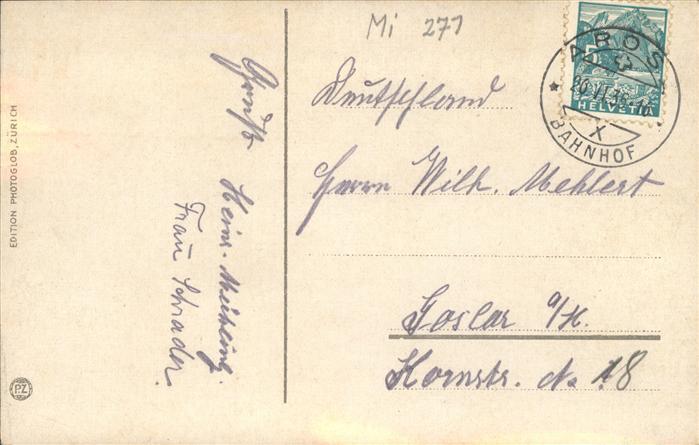 Mi 271
5
HELVETIA
AROSA
20.VI.
X
BAHNHOF
Deutschland
Herrn Wilh. Mehlert
Goslar a/H.
Kornstr. No 18
Frau Schrader.
EDITION PHOTOGLOB, ZÜRICH
PZ